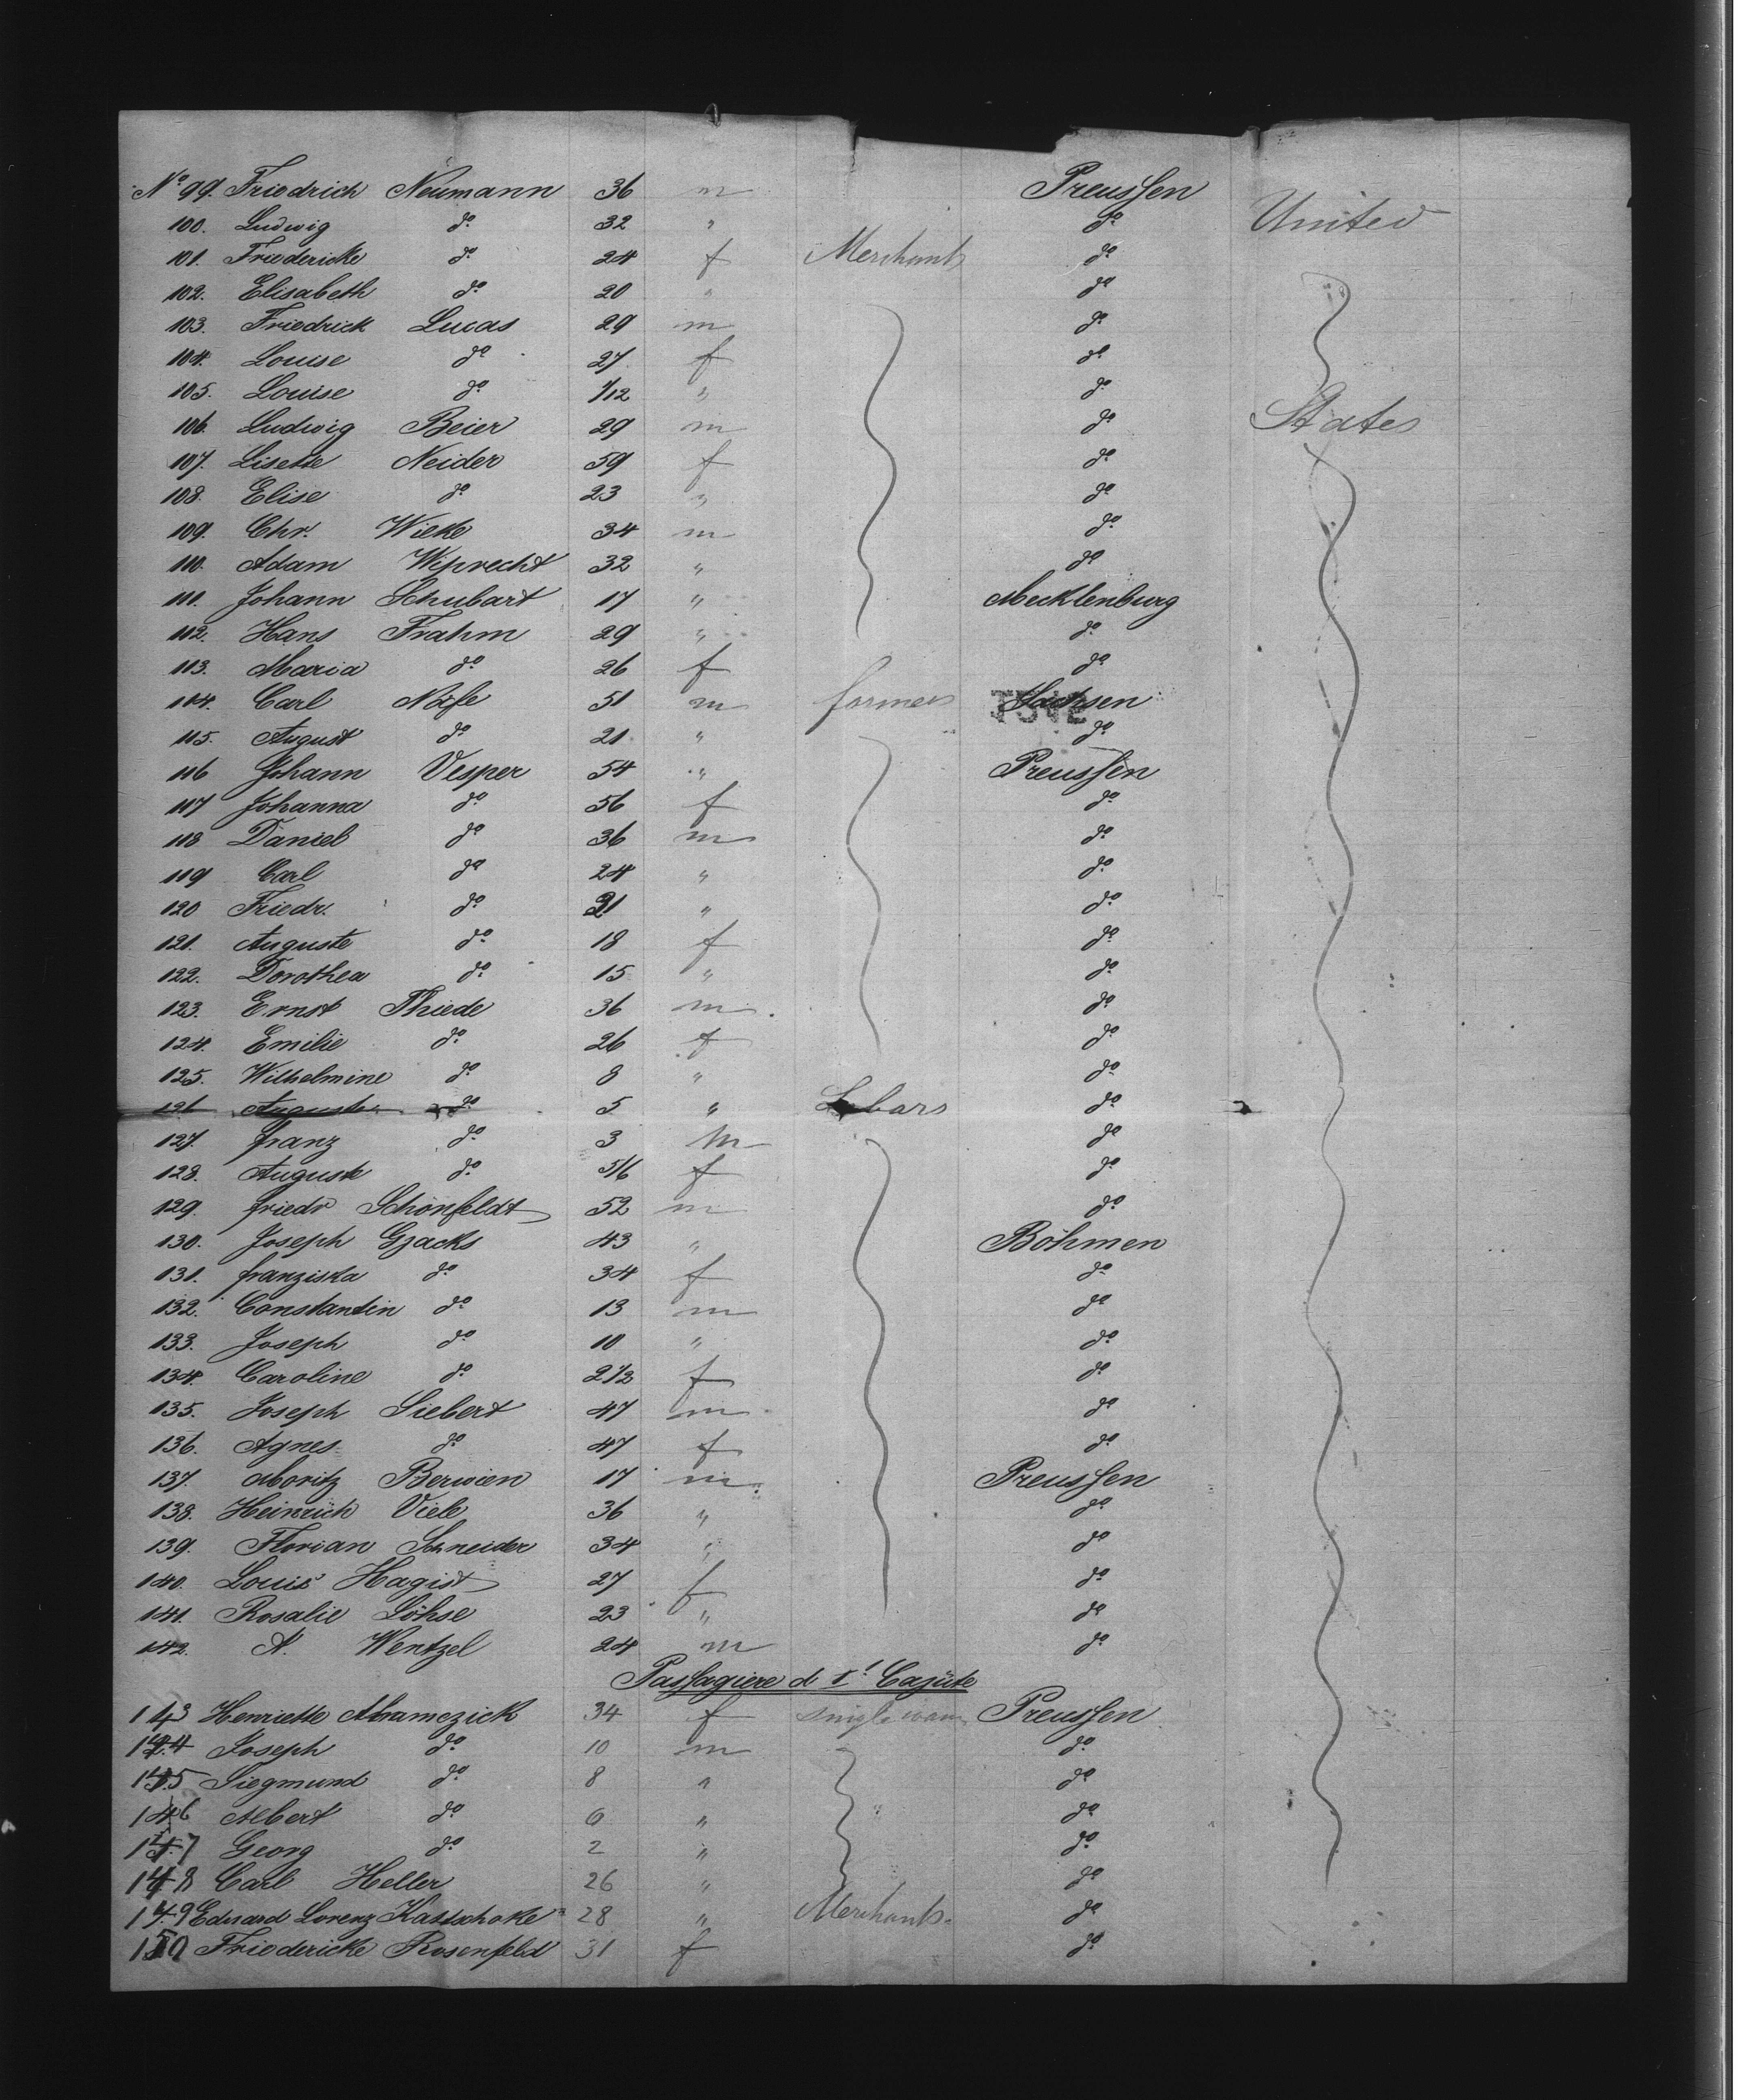 No 99. Friedrich Neumann 36 m Preussen
100. Ludwig do 32 " do United
101. Friedericke do 24 f Merchants do
102. Elisabeth do 20 " do
103. Friedrick Lucas 29 m do
104. Louise do 27 f do
105. Louise do 1/12 " do
106. Ludwig Beier 29 m do States
107. Lisette Neider 59 f do
108. Elise do 23 " do
109. Chr. Wieke 34 m do
110. Adam Wiprecht 32 " do
111. Johann Schubart 17 " Mecklenburg
112. Hans Frahm 29 " do
113. Maria do 26 f do
114. Carl 51 m farmers Sachsen
115. August do 21 " do
116 Johann Vesper 54 " Preussen
117 Johanna do 56 f do
118 Daniel do 36 m do
119 Carl do 24 " do
120 Friedr. do 21 " do
121. Auguste do 18 f do
122. Dorothea do 15 " do
123. Ernst Thiede 36 m do
124. Emilie do 26 f do
125. Wilhelmine do 8 " do
126 Auguste do 5 " Labars do
127. franz do 3 m do
128. Auguste do 5/6 f do
129. friedr Schönfeldt 52 m do
130. Joseph Gzacks 43 " Böhmen
131. franziska do 34 f do
132. Constantin do 13 m do
133. Joseph do 10 " do
134. Caroline do 2 1/2 f do
135. Joseph Siebert 47 m do
136. Agnes do 47 f do
137. Moritz Berwien 17 m Preussen
138. Heinrich Viele 36 " do
139. Florian Schneider 34 " do
140. Louis Hagist 27 f do
141. Rosalie Löhse 23 " do
142. A. Wentzel 24 m do
Passagiere d I. Cajüte
143 Henriette Abramczick 34 f single Preussen
144 Joseph do 10 m do
145 Siegmund do 8 " do
146 Albert do 6 " do
147 Georg do 2 " do
148 Carl Heller 26 " do
149 Eduard Lorenz Kattschoke 28 " Merchants. do
150 Friedericke Rosenfeld 31 f do